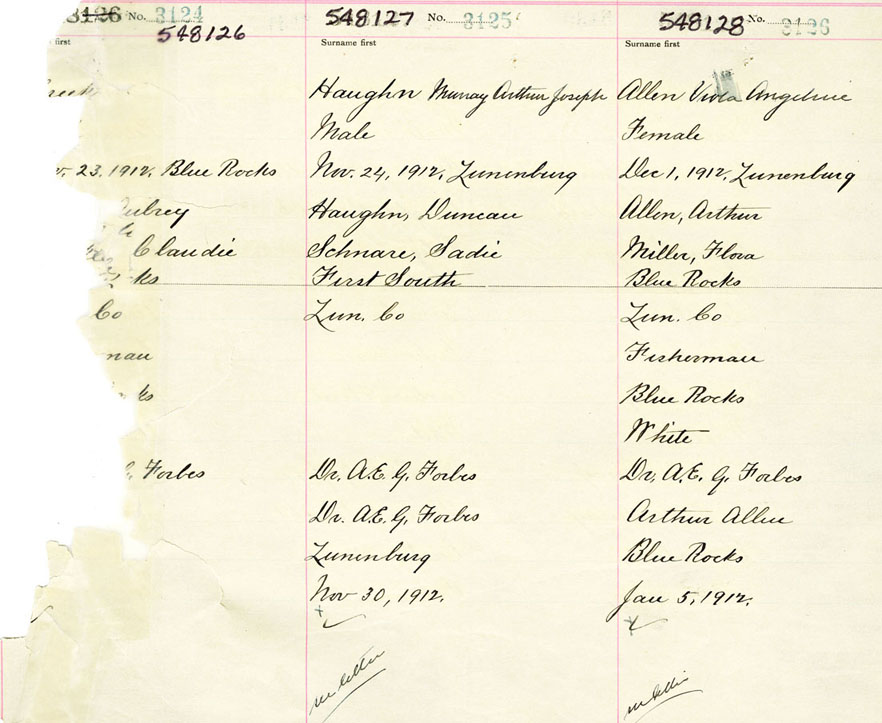 3126 No. 3124
548126
first
23, 1912, Blue Rocks
Aubrey
Claudie
ks
Co
man
ks
G. Forbes
548127 No. 3125
Surname first
Haughn Murray Arthur Joseph
Male
Nov. 24, 1912, Lunenburg
Haughn, Duncan
Schnare, Sadie
First South
Lun. Co
Dr. A.E. G. Forbes
Dr. A.E. G. Forbes
Lunenburg
Nov 30, 1912.
548128 No. 3126
Surname first
Allen Viola Angeline
Female
Dec 1, 1912, Lunenburg
Allen, Arthur
Miller, Flora
Blue Rocks
Lun. Co
Fisherman
Blue Rocks
White
Dr. A.E. G. Forbes
Arthur Allen
Blue Rocks
Jan 5, 1912.